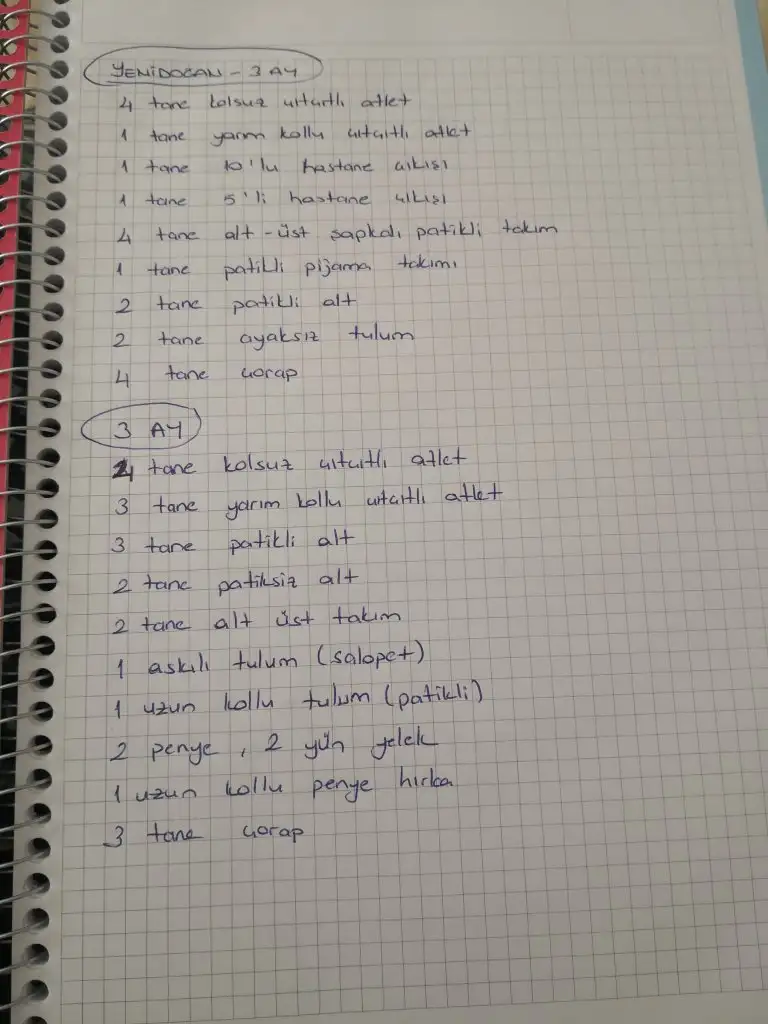 YENİDOĞAN - 3 AY
4 tane kolsuz çıtçıtlı atlet
1 tane yarım kollu çıtçıtlı atlet
1 tane 10'lu hastane çıkışı
1 tane 5'li hastane çıkışı
4 tane alt-üst şapkalı patikli takım
1 tane patikli pijama takımı
2 tane patikli alt
2 tane ayaksız tulum
4 tane çorap
3 AY
4 tane kolsuz çıtçıtlı atlet
3 tane yarım kollu çıtçıtlı atlet
3 tane patikli alt
2 tane patiksiz alt
2 tane alt üst takım
1 askılı tulum (salopet)
1 uzun kollu tulum (patikli)
2 penye, 2 yün yelek
1 uzun kollu penye hırka
3 tane çorap